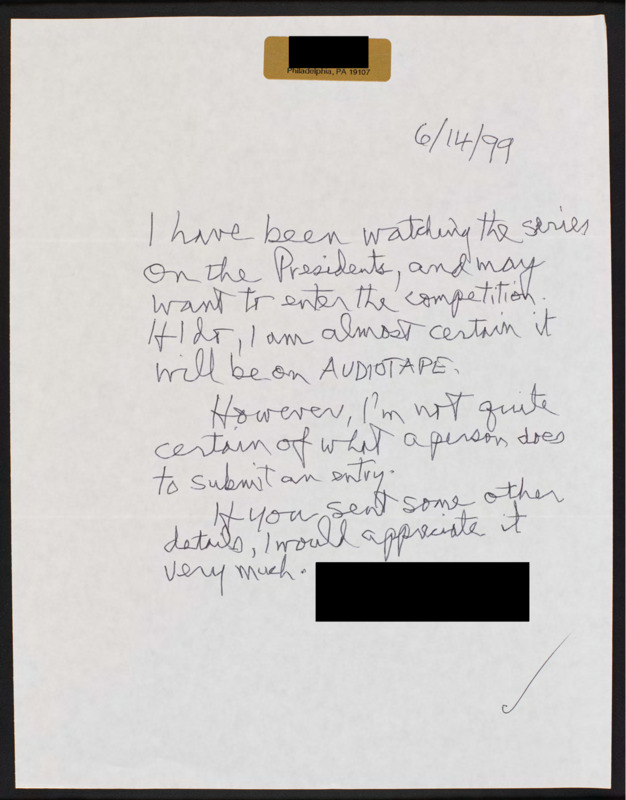 Philadelphia, PA 19107
6/14/99
I have been watching the series
on the Presidents, and may
want to enter the competition.
If I do, I am almost certain it
will be on AUDIOTAPE.
However, I'm not quite
certain of what a person does
to submit an entry.
If you sent some other
details, I would appreciate it
very much.